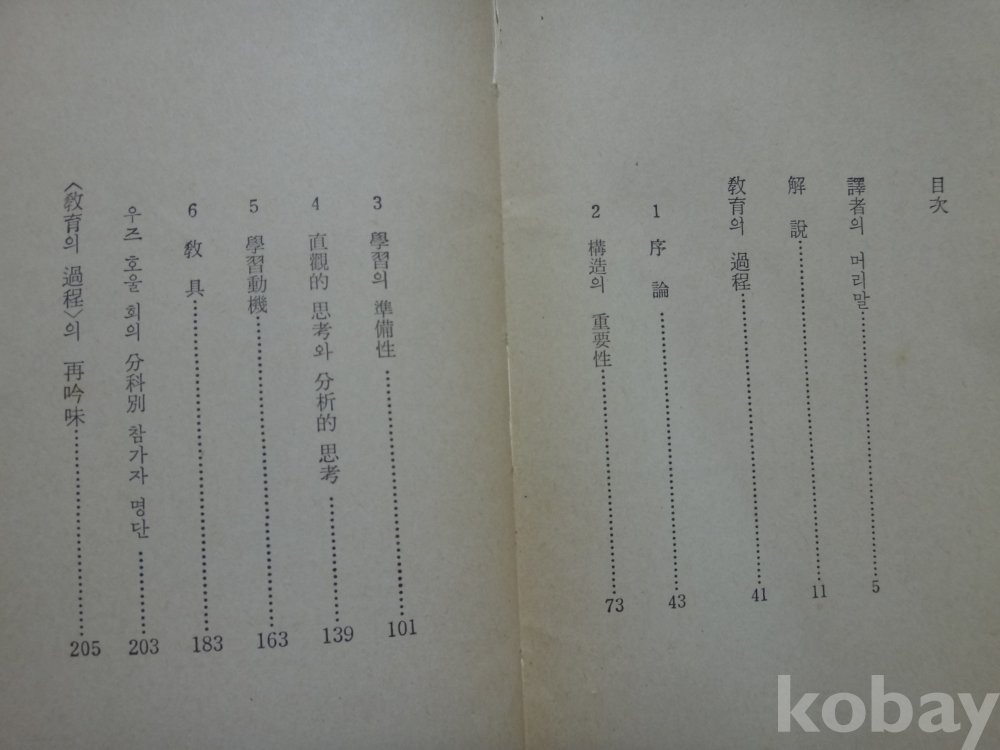 目次
譯者의 머리말 5
解說 11
敎育의 過程 41
1 序論 43
2 構造의 重要性 73
3 學習의 準備性 101
4 直觀的 思考와 分析的 思考 139
5 學習動機 163
6 敎具 183
우즈 호울 회의 分科別 참가자 명단 203
〈敎育의 過程〉의 再吟味 205
kobay